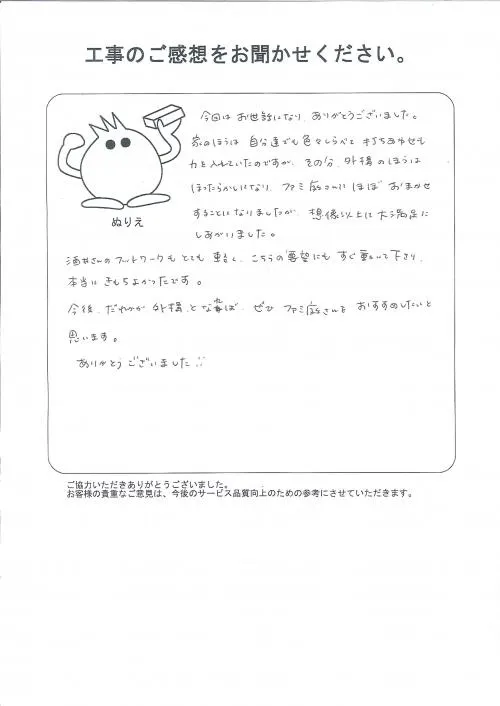 工事のご感想をお聞かせください。
今回は お世話になり、ありがとうございました。
家のほうは 自分達でも色々しらべて 打ちあわせも
力を入れていたのですが、その分、外構のほうは
ほったらかしになり、ファミ庭さんに ほぼ おまかせ
することになりましたが、想像以上に大満足に
しあがりました。
ぬりえ
酒井さんのフットワークも とても 軽く、こちらの要望にも すぐ動いて下さり、
本当に きもちよかったです。
今後、だれかが 外構 となれば、ぜひ ファミ庭さんを おすすめしたいと
思います。
ありがとう ございました
ご協力いただきありがとうございました。
お客様の貴重なご意見は、今後のサービス品質向上のための参考にさせていただきます。